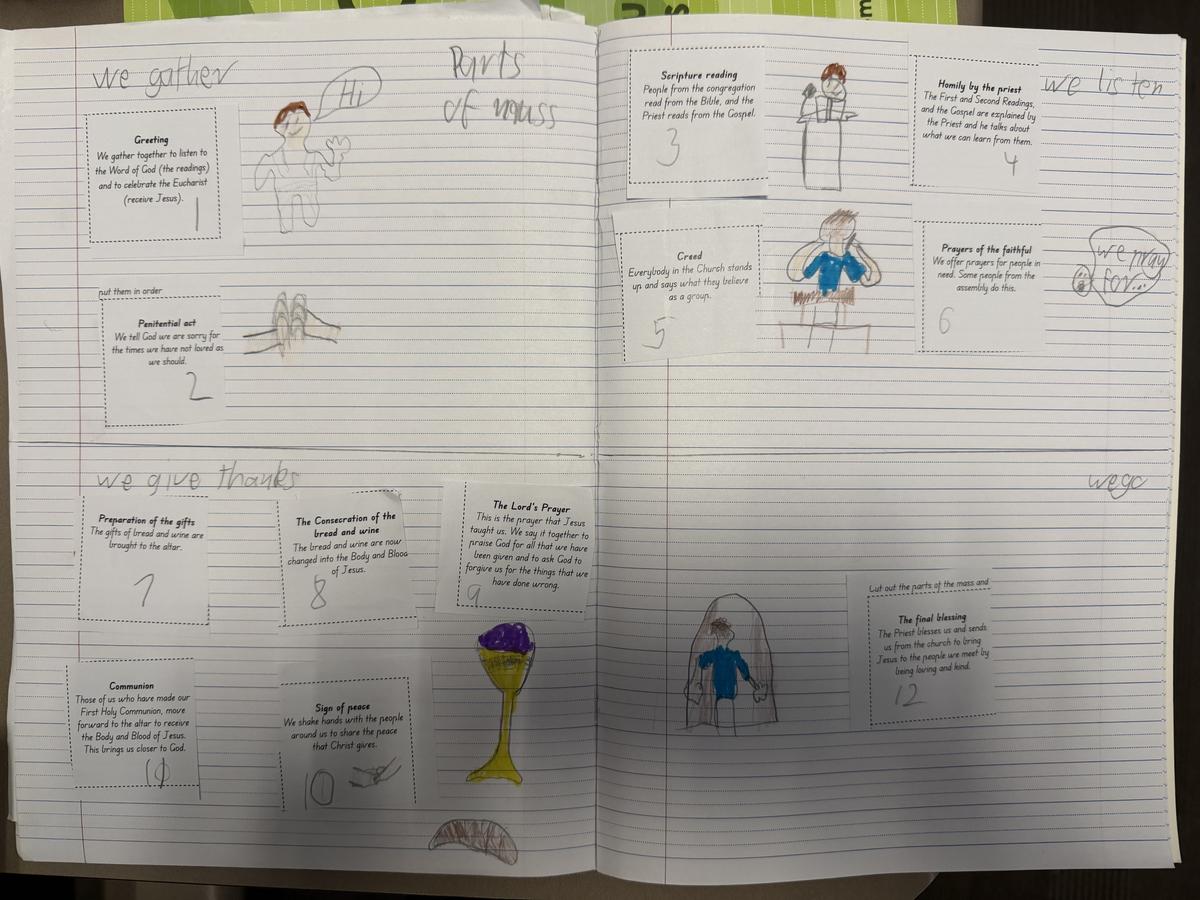 we gather
Parts
of mass
Hi
Greeting
We gather together to listen to
the Word of God (the readings)
and to celebrate the Eucharist
(receive Jesus).
1
put them in order
Penitential act
We tell God we are sorry for
the times we have not loved as
we should.
2
we listen
Scripture reading
People from the congregation
read from the Bible, and the
Priest reads from the Gospel.
3
Homily by the priest
The First and Second Readings,
and the Gospel are explained by
the Priest and he talks about
what we can learn from them.
4
Creed
Everybody in the Church stands
up and says what they believe
as a group.
5
Prayers of the faithful
We offer prayers for people in
need. Some people from the
assembly do this.
6
we pray
for...
we give thanks
Preparation of the gifts
The gifts of bread and wine are
brought to the altar.
7
The Consecration of the
bread and wine
The bread and wine are now
changed into the Body and Blood
of Jesus.
8
The Lord's Prayer
This is the prayer that Jesus
taught us. We say it together to
praise God for all that we have
been given and to ask God to
forgive us for the things that we
have done wrong.
9
Communion
Those of us who have made our
First Holy Communion, move
forward to the altar to receive
the Body and Blood of Jesus.
This brings us closer to God.
11
Sign of peace
We shake hands with the people
around us to share the peace
that Christ gives.
10
we go
Cut out the parts of the mass and
The final blessing
The Priest blesses us and sends
us from the church to bring
Jesus to the people we meet by
being loving and kind.
12